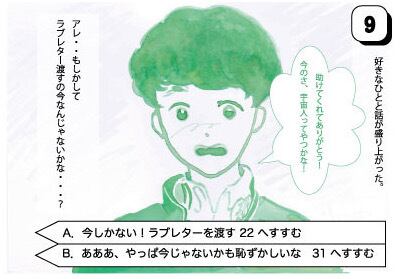 9
好きなひとと話が盛り上がった。
助けてくれてありがとう！
今のさ、宇宙人ってやつかな！
アレ・・もしかして
ラブレター渡すの今なんじゃないかな・・・？
A. 今しかない！ラブレターを渡す 22 へすすむ
B. あああ、やっぱ今じゃないかも恥ずかしいな　31 へすすむ